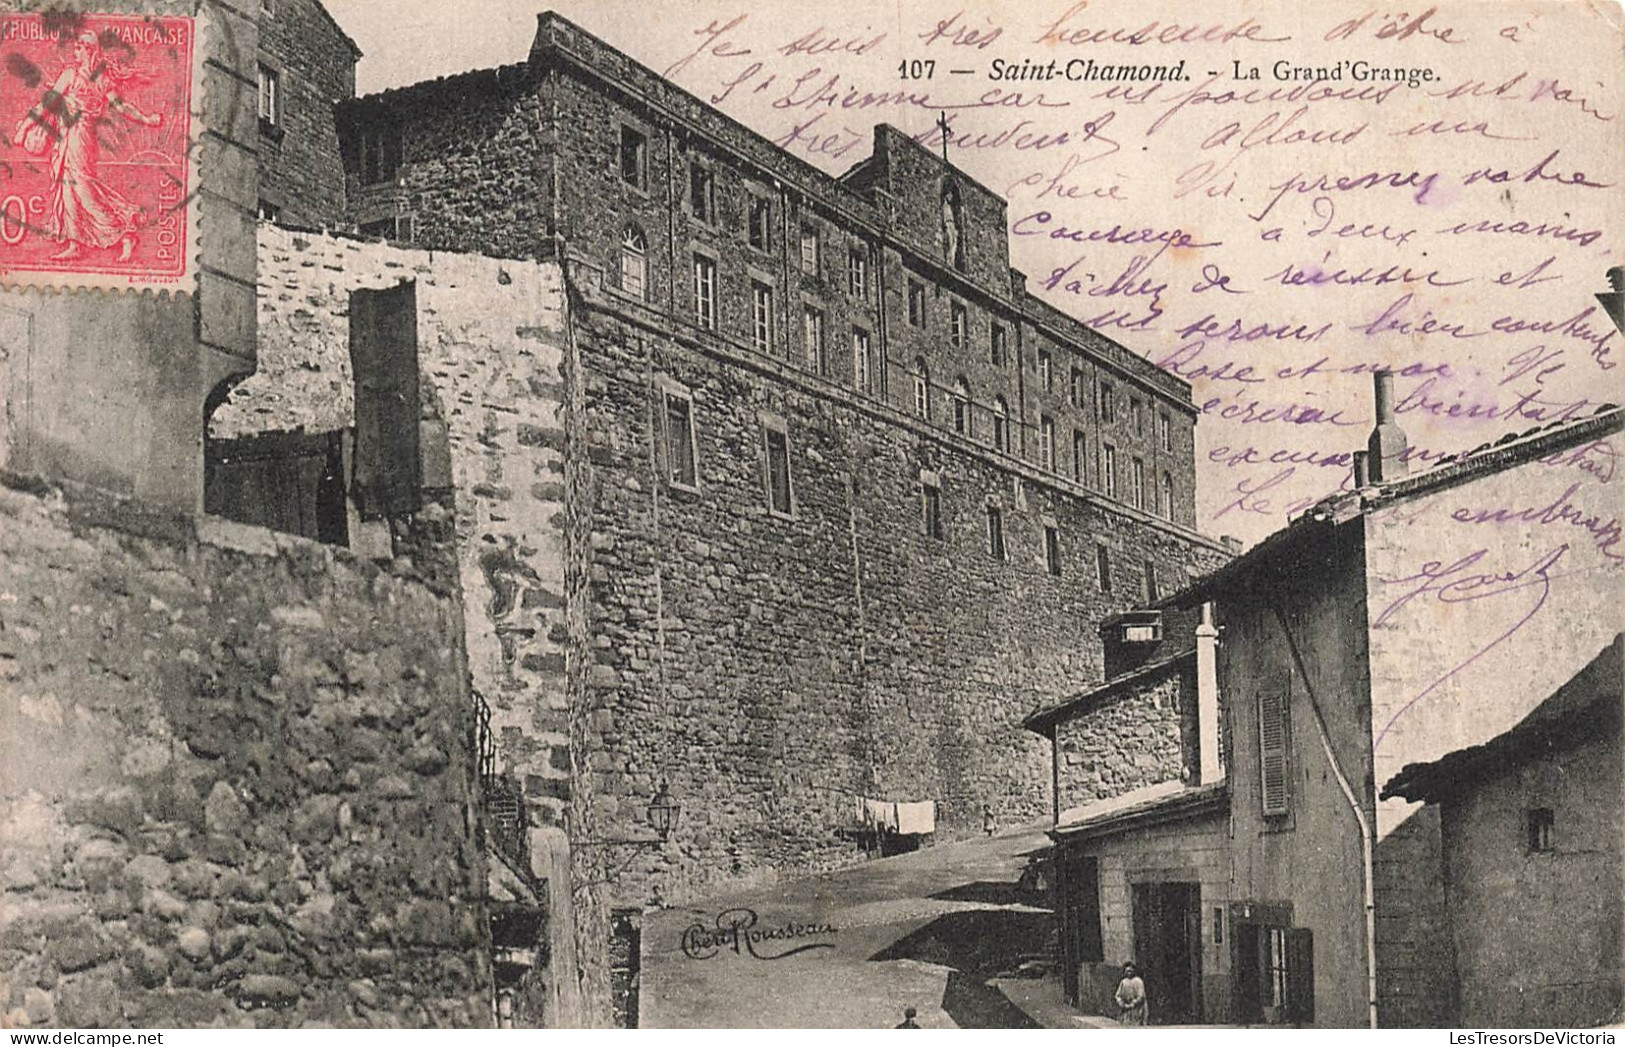 RÉPUBLIQUE FRANÇAISE
POSTES
10c
107 — Saint-Chamond. - La Grand'Grange.
Je suis très heureuse d'être à
St Etienne car ns pouvons ns voir
très souvent. Allons ma
chérie Vic. prenez votre
courage à deux mains,
tâchez de réussir et
ns serons bien contentes
Rose et moi. Je
écrirai bientôt
excusez mon retard
Je embrasse
Chéri Rousseau
LesTresorsDeVictoria